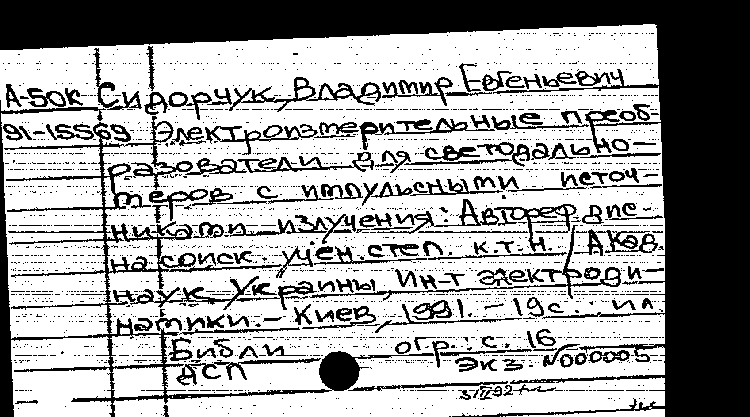 А-50К Сидорчук, Владимир Евгеньевич
91-15569 Электроизмерительные преоб-
разователи для светодально-
меров с импульсными источ-
никами излучения: Автореф. дис.
на соиск. учен. степ. к.т.н. / АКад.
наук Украины, Ин-т электроди-
намики. - Киев, 1991. - 19 с.: ил
Библиогр.: с. 16
ДСП Экз. N000005